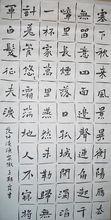 塞下秋来風景異衡陽雁去
無留意四面邊聲連角起千
嶂里長煙落日孤城閉濁酒
一杯家萬里燕然未勒歸無
計羌管悠悠霜滿地人不寐將
軍白髮征夫淚